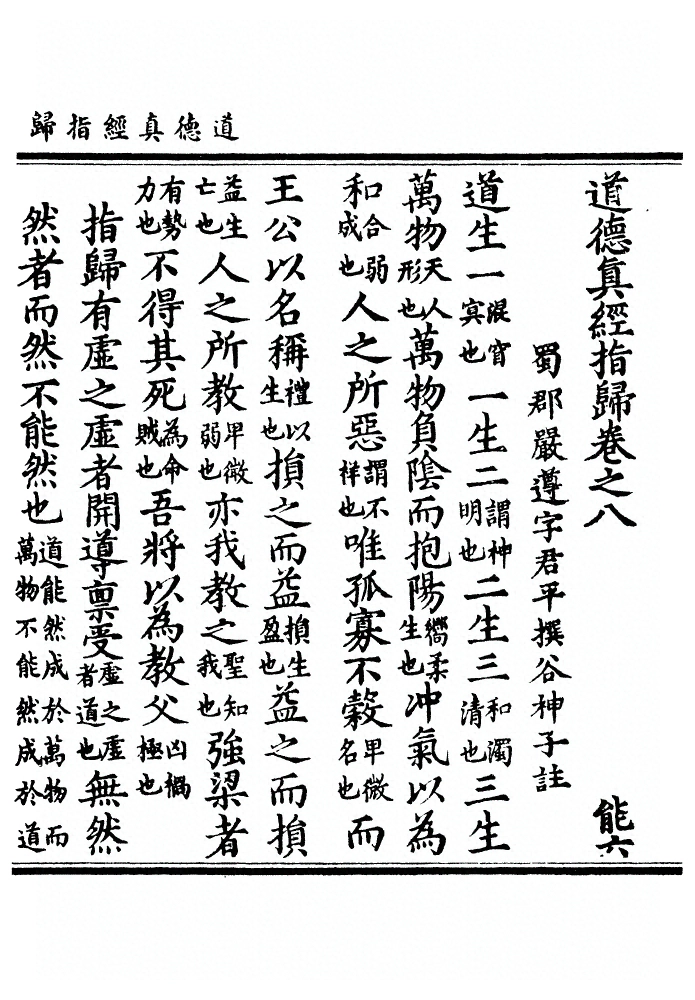 道德真經指歸
道德真經指歸卷之八 能六
蜀郡嚴遵字君平撰谷神子註
道生一混窅冥也一生二謂神明也二生三和濁清也三生
萬物天人形也萬物負陰而抱陽柔生也冲氣以為
和合弱成也人之所惡謂不样也唯孤寡不穀卑微名也而
王公以名稱禮以生也損之而益損生盈也益之而損
益生亡也人之所教卑微弱也亦我教之聖知我也強梁者
有勢力也不得其死為命賊也吾將以為教父凶禍極也
指歸有虛之虛者開導禀受虛之虛者道也無然
然者而然不能然也道能然成於萬物而萬物不能然成於道